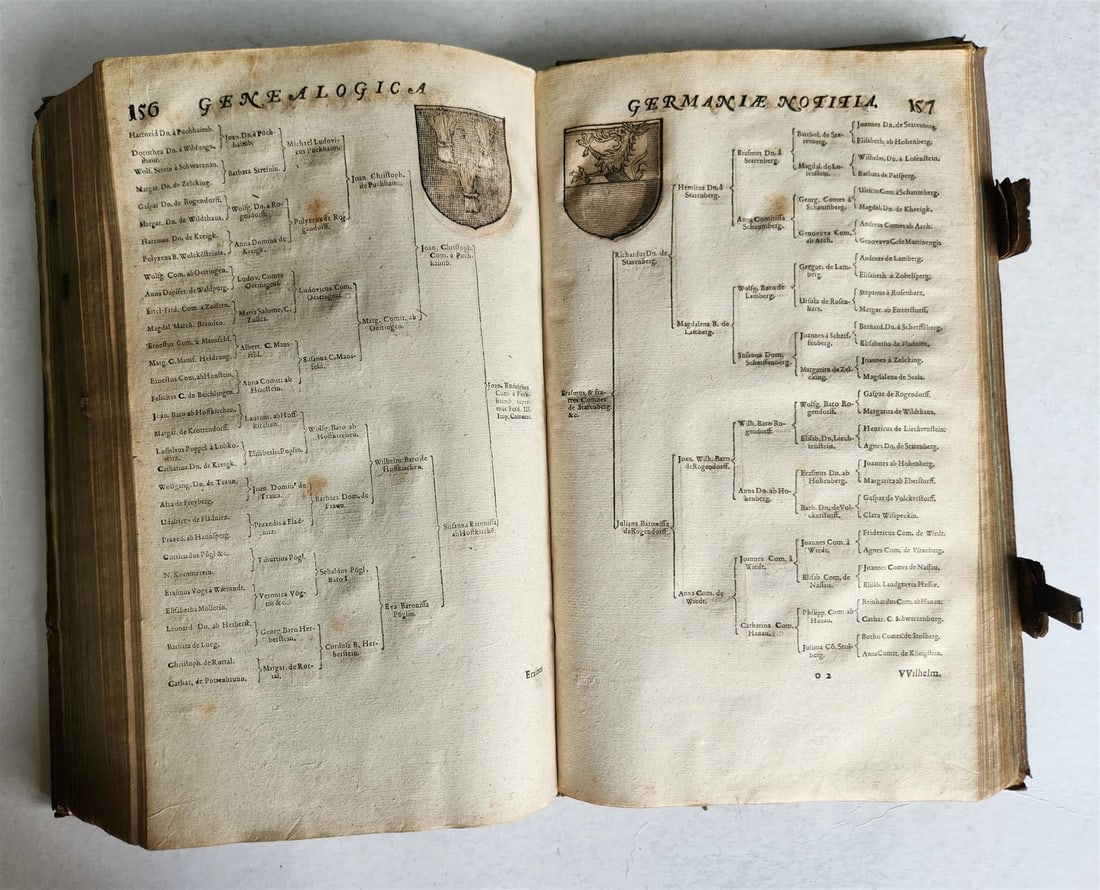 156 GENEALOGICA
Hartneid Dn. à Puchhaimb.
Dorothea Dn. à Wildungs-
haus.
Wolf. Strein à Schwarzenau.
Margar. Dn. de Zelcking.
Gaspar Dn. de Rogendorff.
Margar. Dn. de Wildthaus.
Hartman. Dn. de Kreigk.
Polyxena B. Wolcksteinia.
Wolfg. Com. ab Oettingen.
Anna Dapifer. de Waldpurg.
Eitel-Frid. Com. à Zollern.
Magdal. March. Brandeb.
Ernestus Com. à Mansfeld.
Marg. C. Mansf. Heldrung.
Ernestus Com. ab Honstein.
Felicitas C. de Beichlingen.
Joan. Baro ab Hoffkirchen.
Margar. de Krottendorff.
Ladislaus Poppel à Lobko-
witz.
Catharina Dn. de Kreigk.
Wolfgang. Dn. de Traun.
Afra de Freyberg.
Udalricus de Fladnitz.
Praxed. ab Hannsperg.
Gotthardus Pögl &c.
N. Kornmetzin.
Erasmus Vogt à Wærandt.
Elisabetha Möllerin.
Leonard. Dn. ab Herberst.
Barbara de Lueg.
Christoph. de Rottal.
Cathar. de Pottenbrunn.
Joan. Dn. à Puch-
haimb.
Barbara Streinin.
Wolfg. Dn. à Ro-
gendorff.
Anna Domina de
Kreigk.
Ludov. Comes
Oettingens.
Maria Salome, C.
Zoller.
Albert. C. Mans-
feld.
Anna Comit. ab
Honstein.
Laurent. ab Hoff-
kirchen.
Elisabetha Poplin.
Joan. Domin. de
Traun.
Praxedis à Flad-
nitz.
Tiburtius Pögl.
Veronica Vög-
tin &c.
Georg. Baro Her-
berstein.
Margar. de Rot-
tal.
Michael Ludovi-
cus Puchhaim.
Polyxena de Rog-
gendorff.
Ludovicus Com.
Oettingens.
Susanna C. Mans-
feld.
Wolfg. Baro ab
Hoffkirchen.
Barbara Dom. de
Traun.
Sebaldus Pögl
Baro I.
Cordula B. Her-
berstein.
Joan. Christoph.
de Puchhaim.
Marg. Comit. ab
Oettingen.
Wilhelm. Baro de
Hoffkirchen.
Eva Baronissa
Pöglin.
Joan. Christoph.
Com. à Puch-
haimb.
Susanna Baronissa
ab Hoffkirchē.
Joan. Rudolphus
Com. à Puch-
haimb
Ferd. III.
Imp.
GERMANIÆ NOTITIA. 157
Erasmus & fra-
tres Comites
de Starenberg.
&c.
Richardus Dn. de
Starenberg.
Juliana Baronissa
de Rogendorff.
Henricus Dn. à
Starenberg.
Magdalena B. de
Lamberg.
Joan. Wilh. Baro
de Rogendorff.
Anna Com. de
Wiedt.
Erasmus Dn. à
Starenberg.
Anna Comitissa
Schaumberg.
Wolfg. Baro de
Lamberg.
Susanna Dom.
Scherffenberg.
Wilh. Baro Ro-
gendorff.
Anna Dn. ab Ho-
henberg.
Joannes Com. à
Wiedt.
Catharina Com.
Hanau.
Barthol. de Sta-
renberg.
Magdal. de Lo-
senstein.
Georg. Comes à
Schaumberg.
Genoveva Com.
ab Arch.
Gregor. de Lam-
berg.
Ursula de Rosen-
hartz.
Joannes à Scherf-
fenberg.
Margareta de Zel-
cking.
Wolfg. Baro Ro-
gendorff.
Elisab. Dn. Liech-
tenstein.
Erasmus Dn. ab
Hohenberg.
Barb. Dn. de Vol-
ckerstorff.
Joannes Com. à
Wiedt.
Elisab Com. de
Nassau.
Philipp. Com. ab
Hanau.
Juliana Cō. Stol-
berg.
Joannes Dn. de Starenberg.
Elisabeth. ab Hohenberg.
Wilhelm. Dn. à Losenstein.
Barbara de Patsperg.
Ulricus Com. à Schaumberg.
Magdal. Dn. de Khreigk.
Andreas Comes ab Arch.
Genoveva C. de Martinengis
Andreas de Lamberg.
Elisabeth à Zobelsperg.
Stepanus à Rosenhartz.
Margar. ab Eberstorff.
Bernard. Dn. à Scherffēberg.
Elisabetha de Fladnitz.
Joannes à Zelcking.
Magdalena de Scala.
Gaspar de Rogendorff.
Margarita de Wildhaus.
Henricus de Liechtenstein.
Agnes Dn. de Starenberg.
Joannes ab Hohenberg.
Margarita ab Eberstorff.
Gaspar de Volckerstorff.
Clara Wispeckin.
Fridericus Com. de Wiedt.
Agnes Com. de Virneburg.
Joannes Comes de Nassau.
Elisab. Landgravia Hassiæ.
Reinhardus Com. ab Hanau.
Cathar. C. Schwartzenburg.
Botho Comes de Stolberg.
Anna Comit. de Königstein.
O 2 VVilhelm.